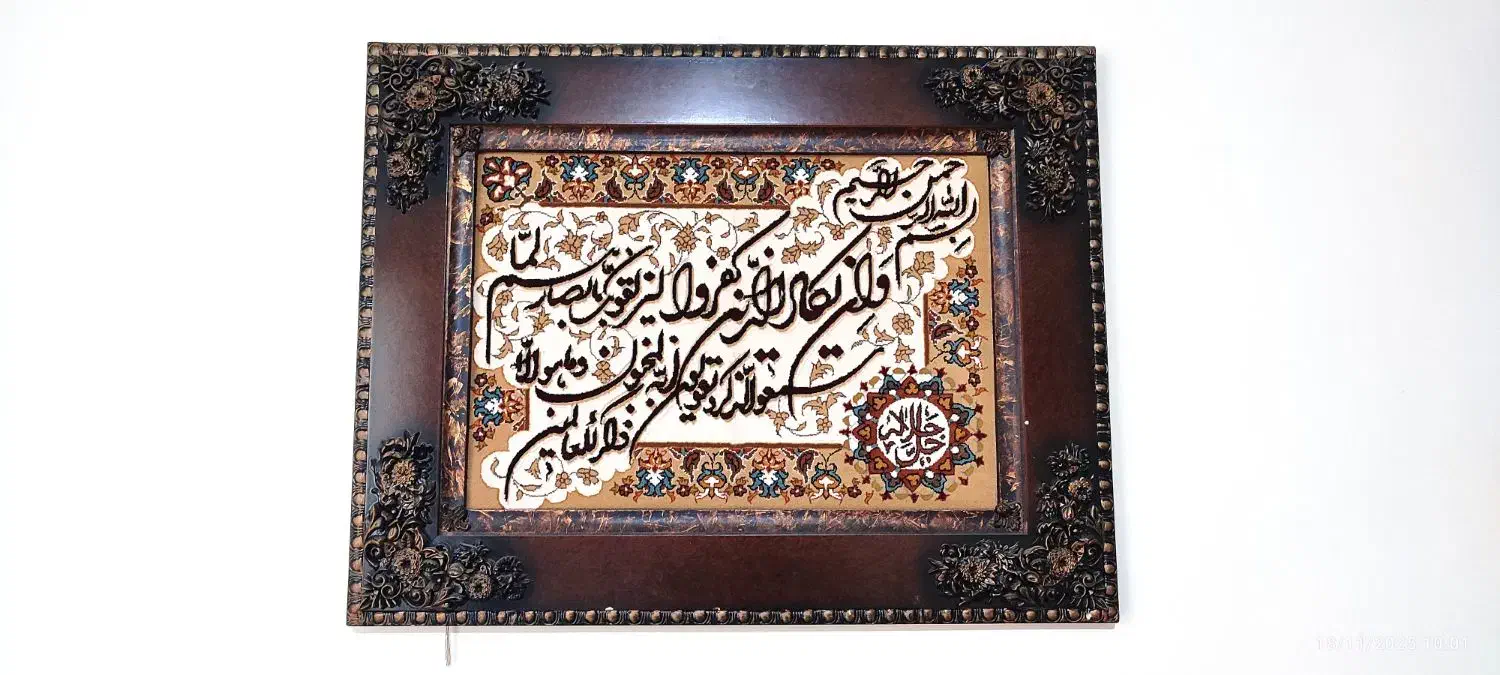 بسم الله الرحمن الرحیم
وَاِن یکاد الذّین کفروا لیزلقونک بابصارهم لمّا
سمعوا الذّکر و یقولون انّه لمجنون و ما هو الّا
ذکر للعالمین
جلّ جلاله
18/11/2023 10:01